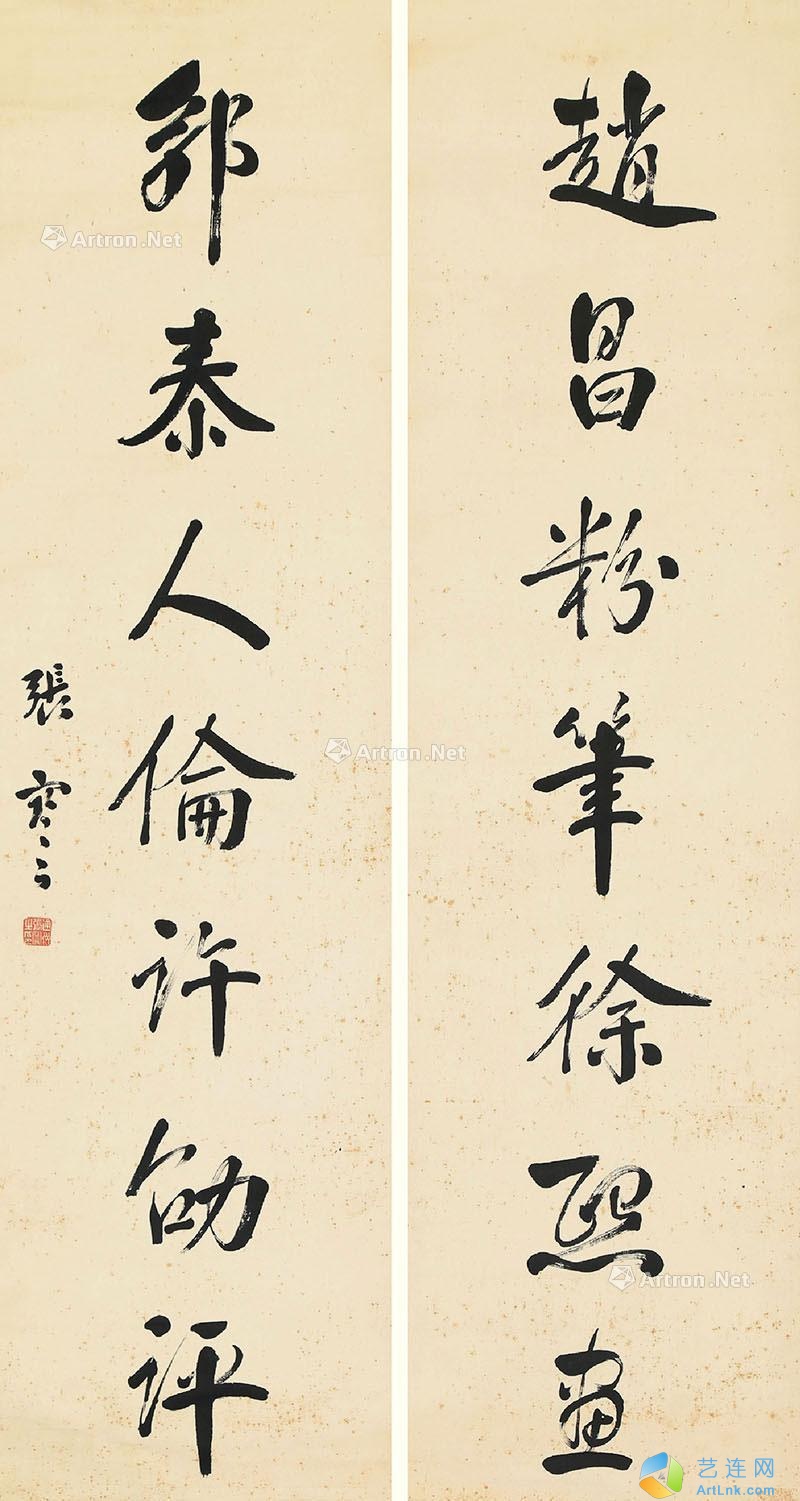 趙昌粉筆徐熙畫
郭泰人倫許劭評
張謇
Artron.Net
Artron.Net
Artron.Net
艺连网
ArtLnk.com